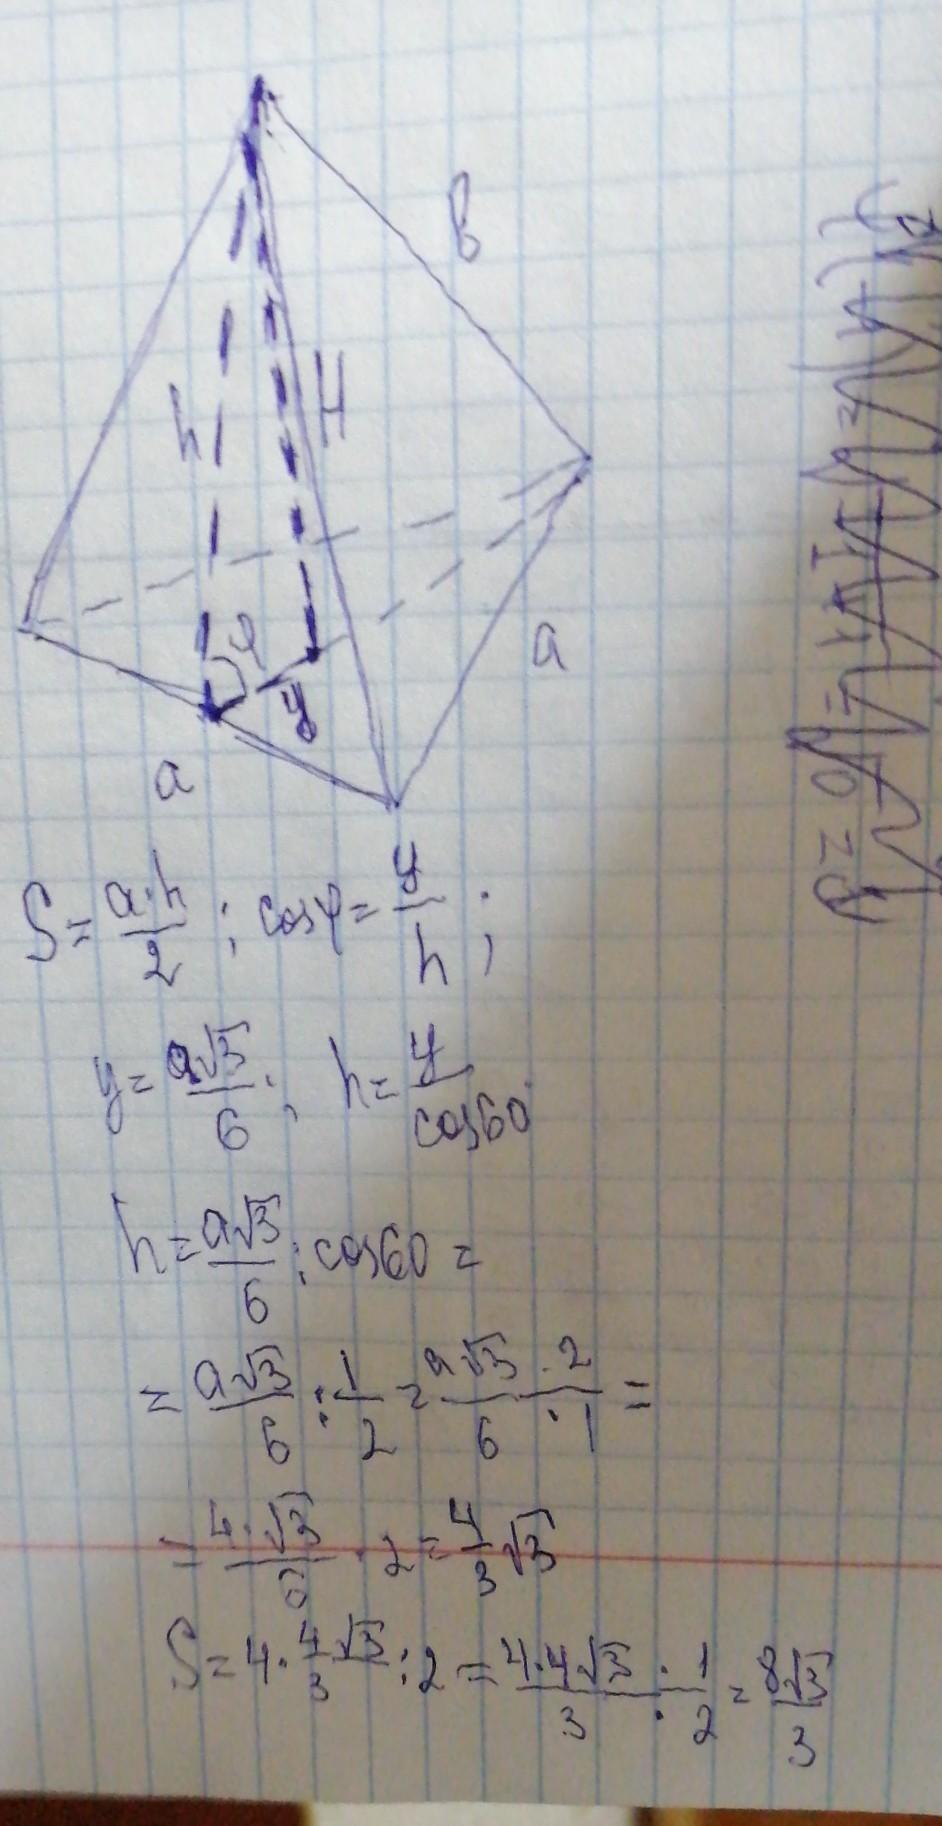 в
h
H
φ
y
a
a
S = a·h/2 ; cosφ = y/h ;
y = a√3/6 ; h = y/cos60
h = a√3/6 : cos60 =
= a√3/6 : 1/2 = a√3/6 · 2/1 =
= 4·√3/6 · 2 = 4/3 √3
S = 4 · 4√3/3 : 2 = 4·4√3/3 · 1/2 = 8√3/3